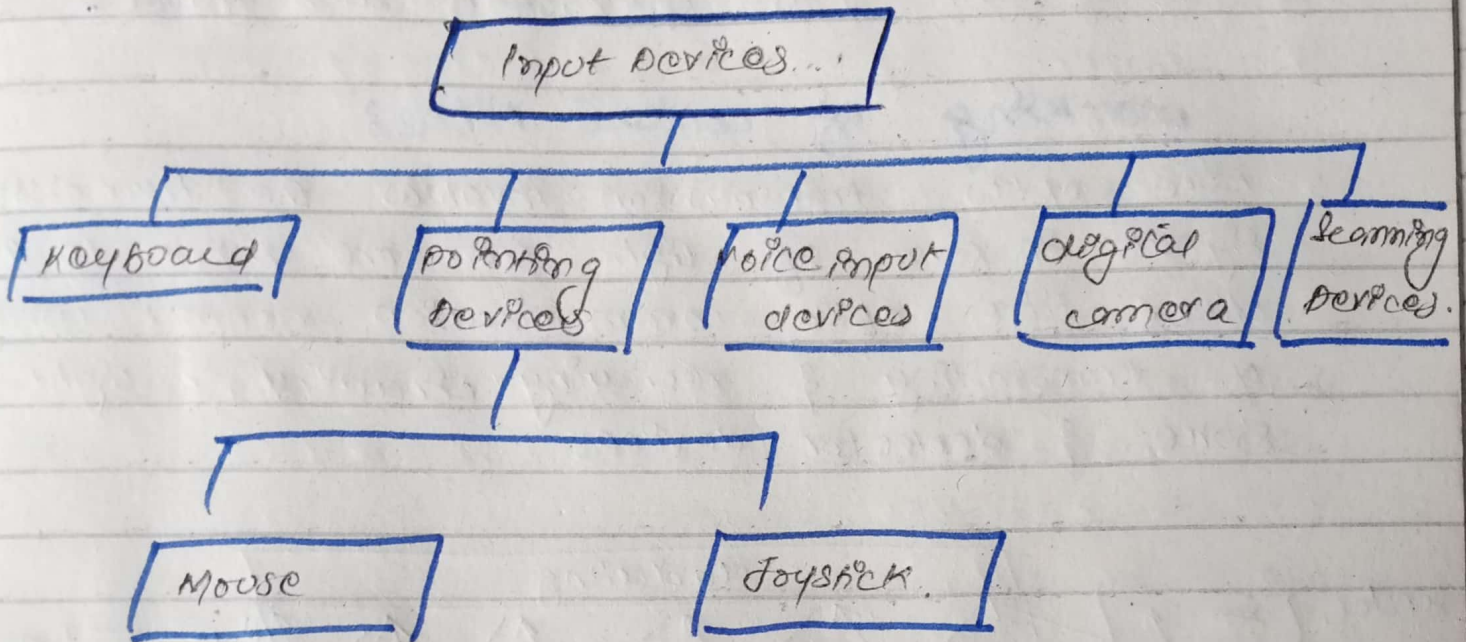 Input Devices...
Keyboard
Pointing
Devices
Voice input
devices
digital
camera
Scanning
Devices.
Mouse
Joystick.